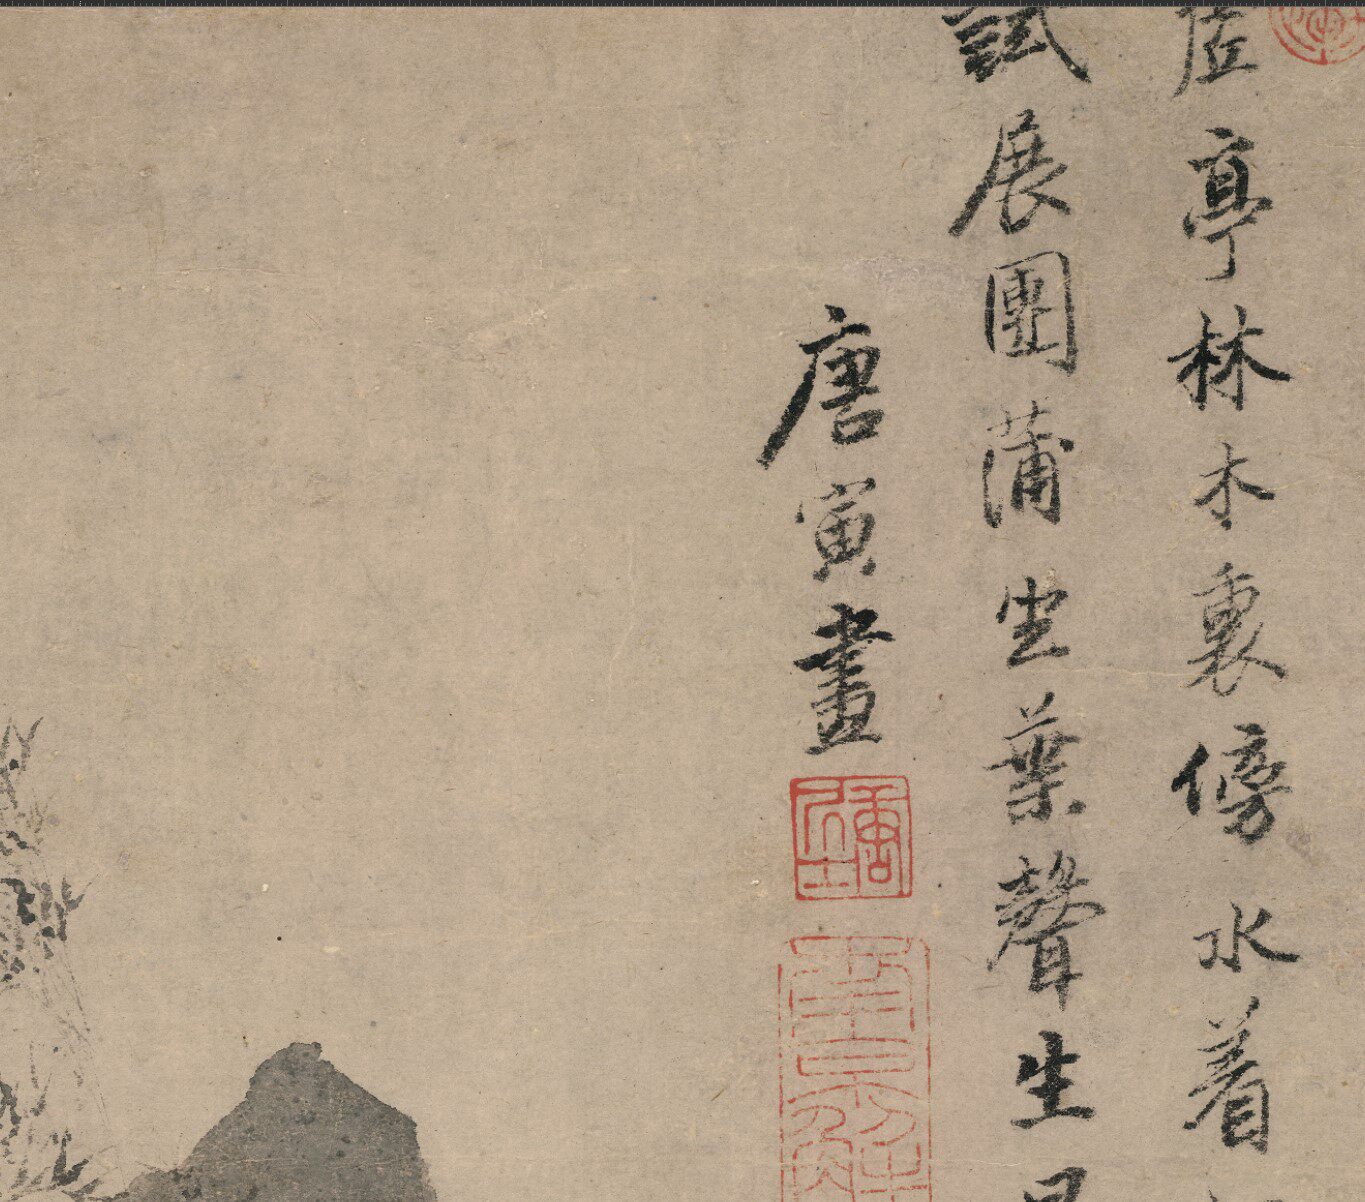 亭林木裏傍水着
試展團蒲坐葉聲生
唐寅畫
唐居士